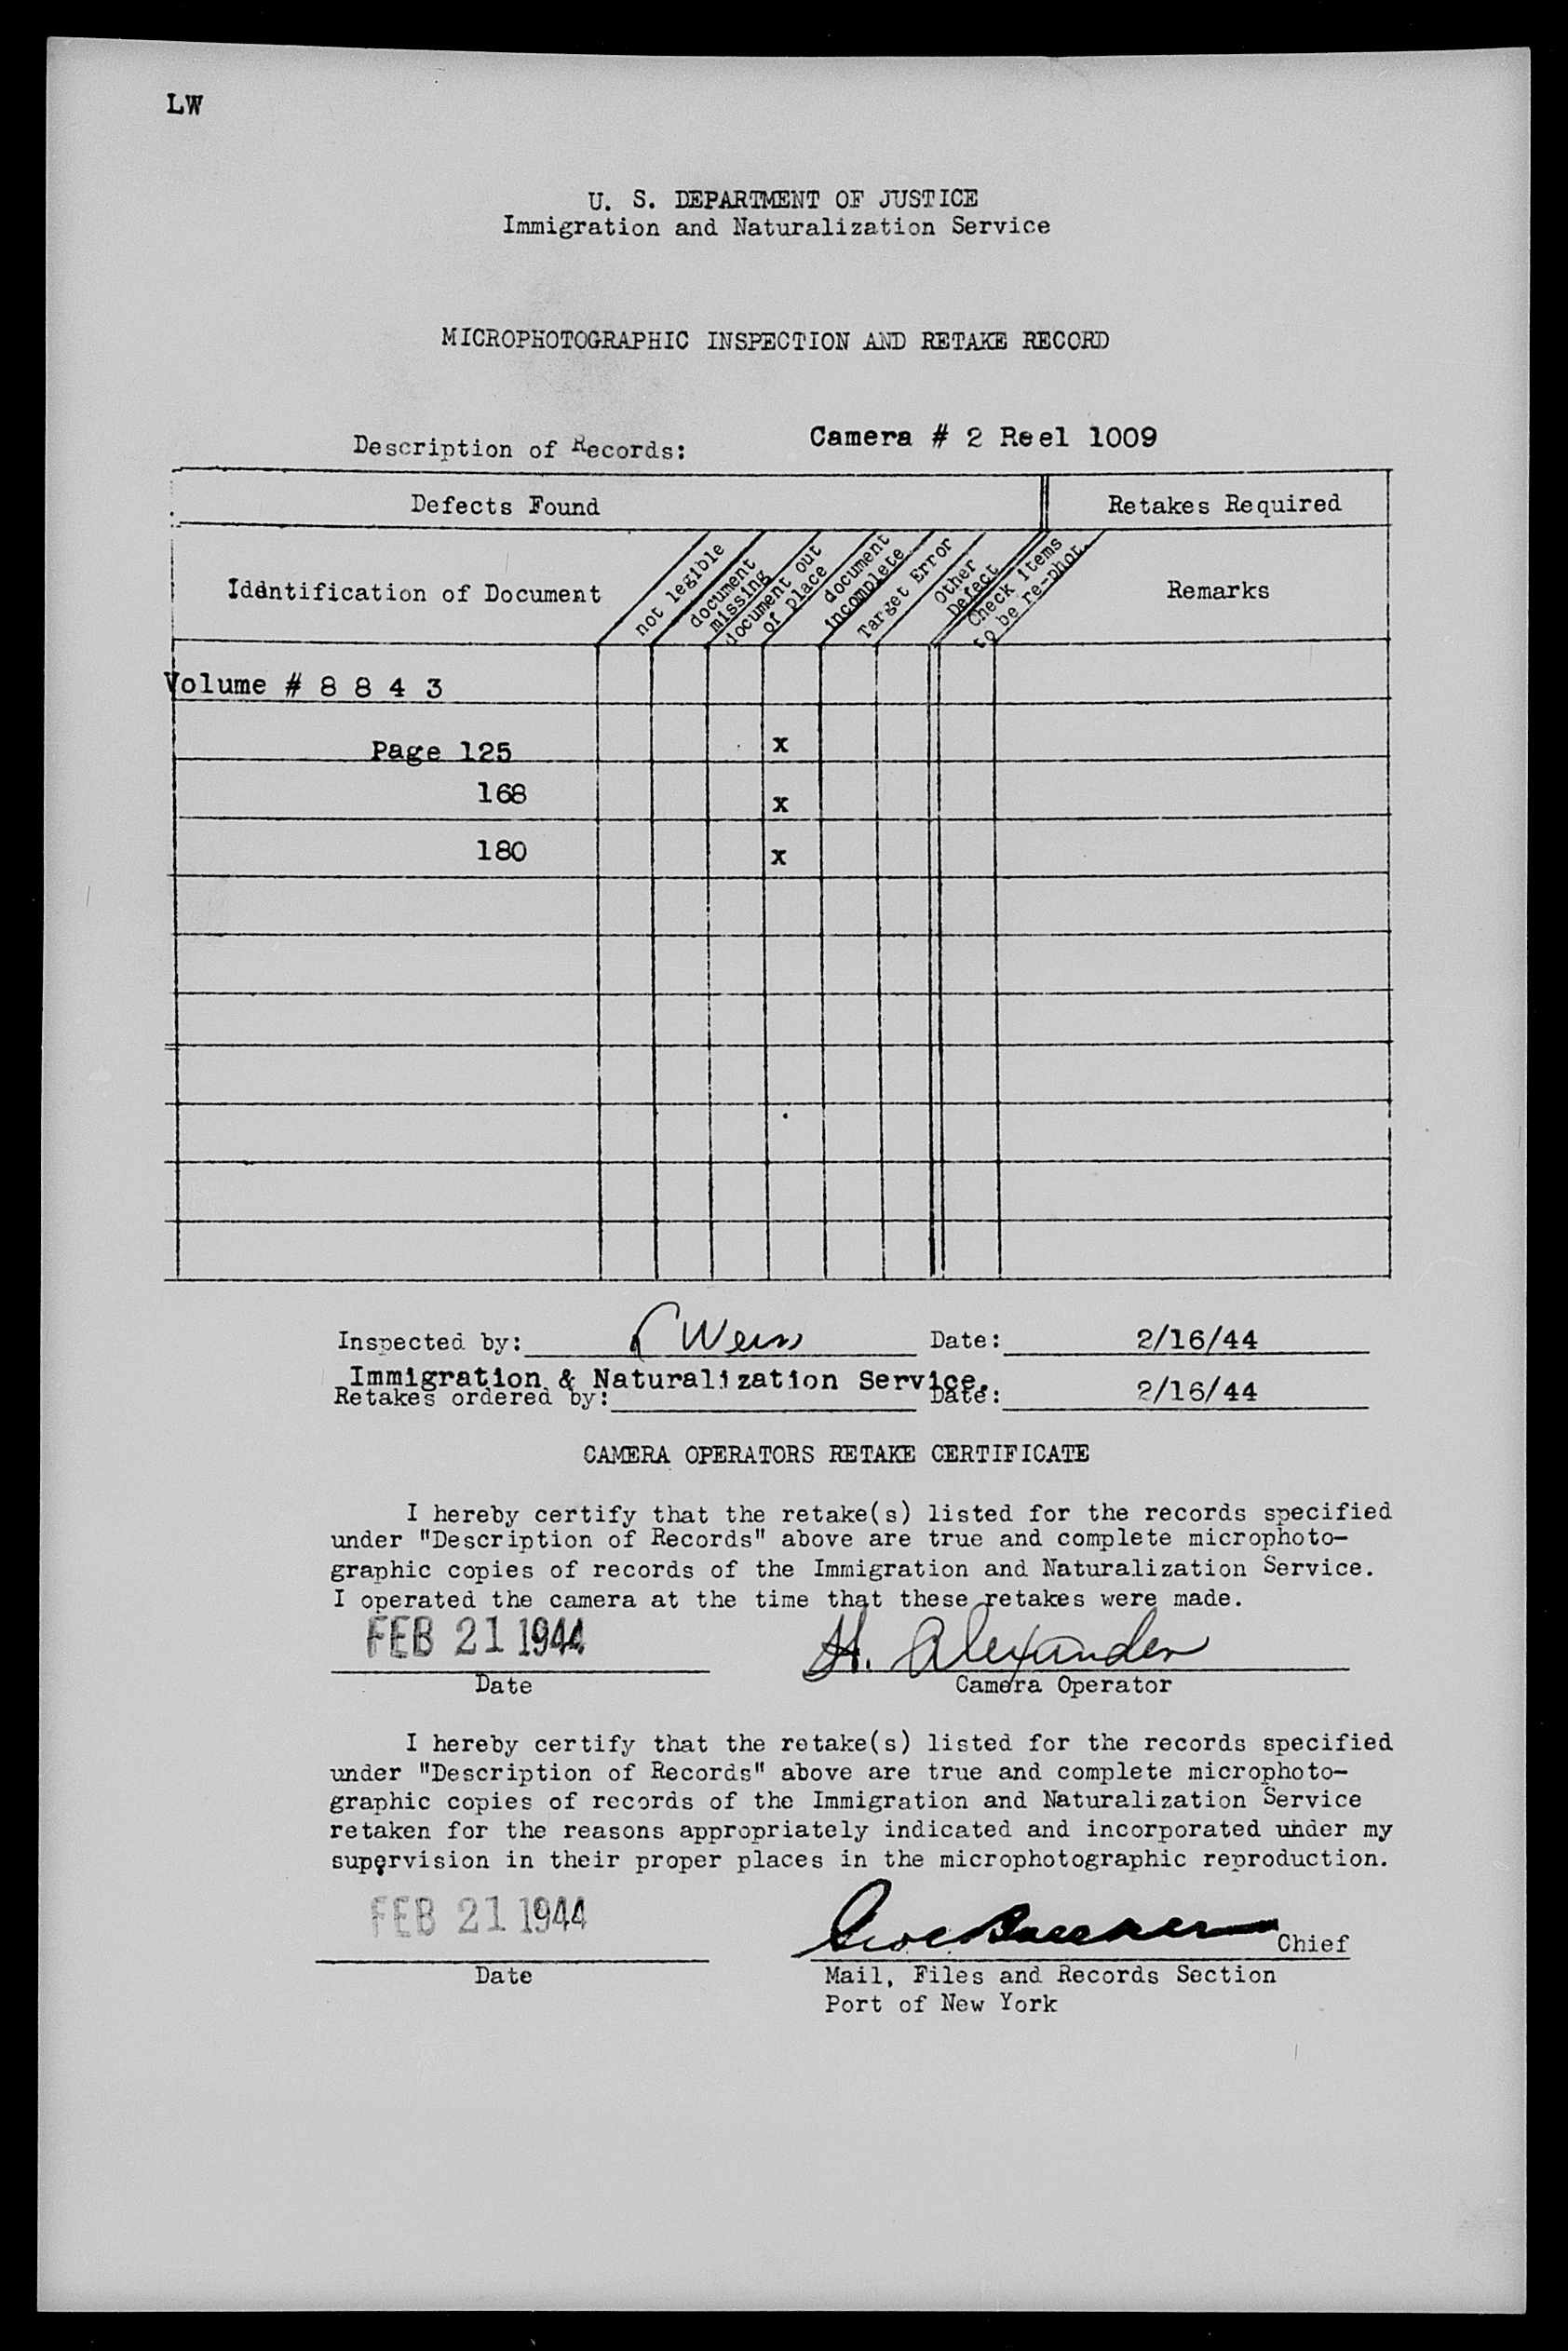 LW
U. S. DEPARTMENT OF JUSTICE
Immigration and Naturalization Service
MICROPHOTOGRAPHIC INSPECTION AND RETAKE RECORD
Description of Records: Camera # 2 Reel 1009
Defects Found Retakes Required
Iddntification of Document not legible document missing document out of place document incomplete Target Error Other Defect Check items to be re-phot. Remarks
Volume # 8 8 4 3
Page 125 x
168 x
180 x
Inspected by: Weiss Date: 2/16/44
Immigration & Naturalization Service.
Retakes ordered by: Date: 2/16/44
CAMERA OPERATORS RETAKE CERTIFICATE
I hereby certify that the retake(s) listed for the records specified
under "Description of Records" above are true and complete microphoto-
graphic copies of records of the Immigration and Naturalization Service.
I operated the camera at the time that these retakes were made.
FEB 21 1944 H. Alexander
Date Camera Operator
I hereby certify that the retake(s) listed for the records specified
under "Description of Records" above are true and complete microphoto-
graphic copies of records of the Immigration and Naturalization Service
retaken for the reasons appropriately indicated and incorporated under my
supervision in their proper places in the microphotographic reproduction.
FEB 21 1944 Chief
Date Mail, Files and Records Section
Port of New York